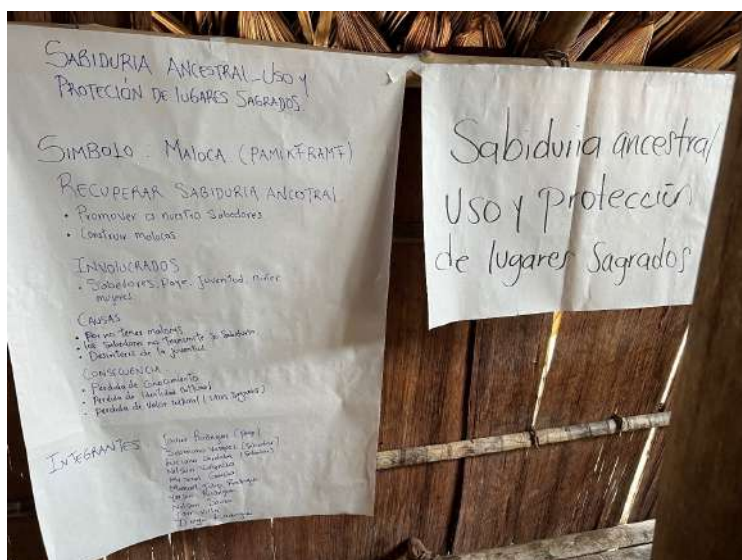 SABIDURIA ANCESTRAL-USO Y
PROTECIÓN DE lUGARES SAGRADOS.
SIMBOlO : MALOCA (PAMIKɨRAMɨ)
RECUPERAR SABIDURIA ANCESTRAL
• Promover a nuestro Sabedores
• Construir malocas
INVOLUCRADOS
• Sabedores, Paye, Juventud, niñez
mujeres
CAUSAS
• Por no tener malocas
• los Sabedores no Transmite su Sabiduria
• Desinteres de la juventud
CONSECUENCIA
• Perdida de Conocimiento
• Perdida de Identidad Cultural
• Perdida de Valor cultural (sitios Sagrados)
INTEGRANTES
Rodriguez (paye)
(Sabedor)
(Sabedor)
Nelson
Garcia
Manuel Felipe Rodriguez
Rodriguez
Nelson
Sabiduria ancestral
Uso y Protección
de lugares Sagrados